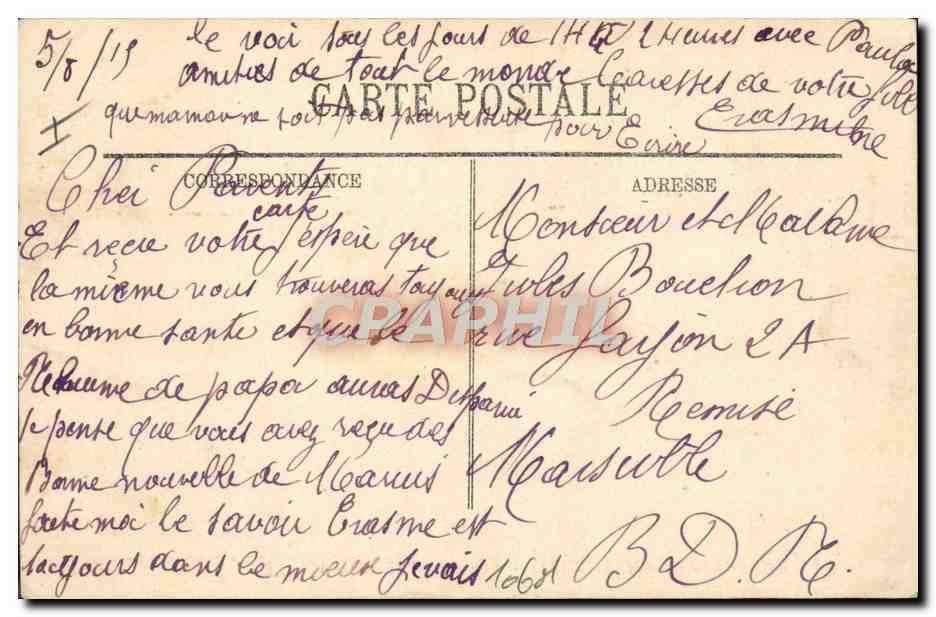 5/8/15
le voi tous les jours de 1 H à 2 Heures avec Paul
amities de tout le monde Caresses de votre fille
CARTE POSTALE
que maman ne soit pas paresseuse pour Ecrire
Erasmine
CORRESPONDANCE
ADRESSE
Cher Parents
carte
Et reçue votre espere que
la mième vous trouveras toujours
en bonne sante et que le
Rehume de papa auras Disparu
je pense que vous avez reçu des
Bonne nouvelle de Marius
faite moi le savoir Erasme est
toujours dans le mieux je vais
Monsieur et Madame
Jules Bouchon
rue 2A
Remise
Marseille
B. D. R.
CPAPHIL